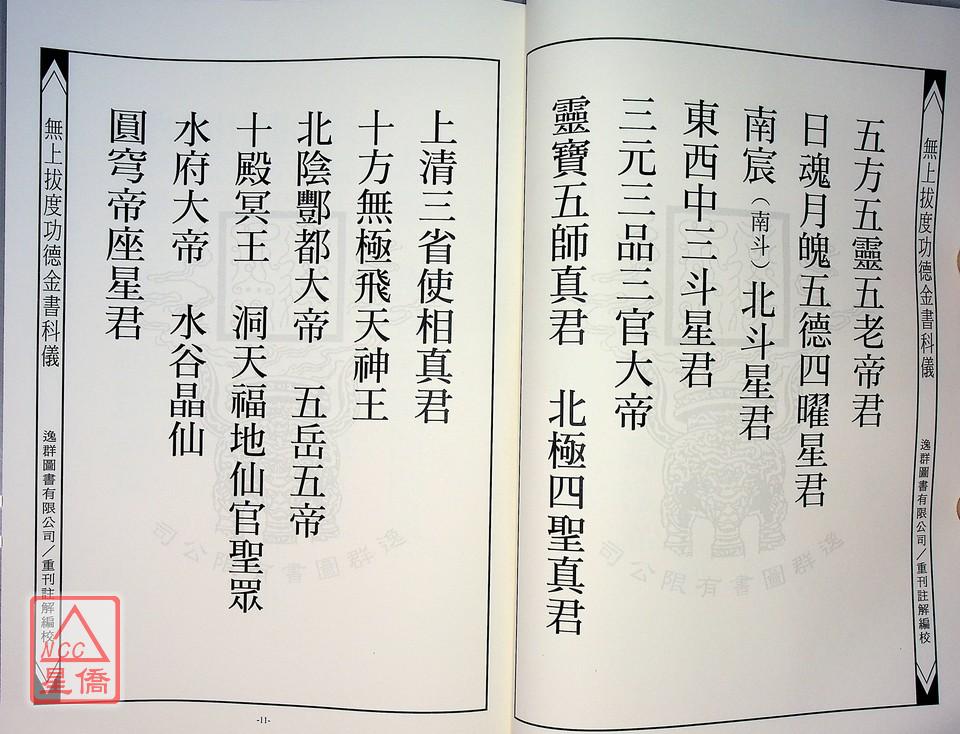 無上拔度功德金書科儀
逸群圖書有限公司／重刊註解編校
五方五靈五老帝君
日魂月魄五德四曜星君
南宸（南斗）北斗星君
東西中三斗星君
三元三品三官大帝
靈寶五師真君　北極四聖真君
逸群圖書有限公司
上清三省使相真君
十方無極飛天神王
北陰酆都大帝　五岳五帝
十殿冥王　洞天福地仙官聖眾
水府大帝　水谷晶仙
圓穹帝座星君
逸群圖書有限公司
無上拔度功德金書科儀
逸群圖書有限公司／重刊註解編校
-11-
NCC
星僑